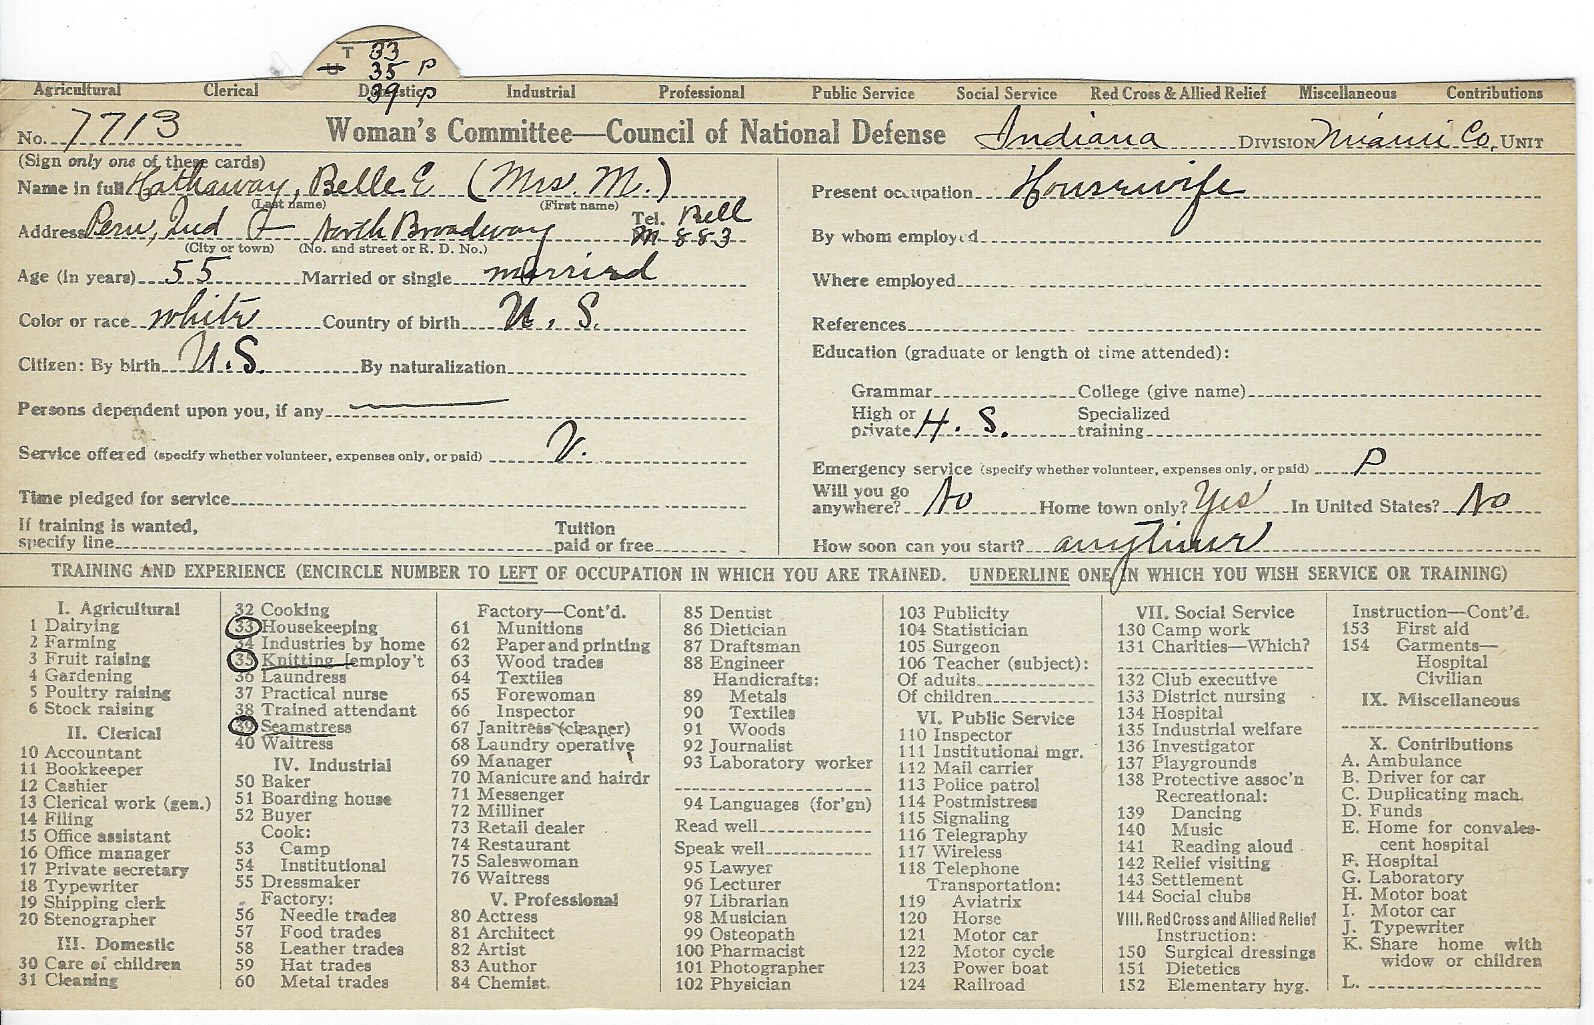 T 33
U 35 P
39 P
Agricultural Clerical Domestic Industrial Professional Public Service Social Service Red Cross & Allied Relief Miscellaneous Contributions
No. 7713 Woman's Committee—Council of National Defense Indiana DIVISION Miami Co. UNIT
(Sign only one of these cards)
Name in full Hathaway, Belle E (Mrs. M.)
(Last name) (First name)
Address Peru, Ind North Broadway Tel. Bell M 883
(City or town) (No. and street or R. D. No.)
Age (in years) 55 Married or single married
Color or race white Country of birth U. S.
Citizen: By birth U.S. By naturalization
Persons dependent upon you, if any —
Service offered (specify whether volunteer, expenses only, or paid) V.
Time pledged for service
If training is wanted, specify line Tuition paid or free
Present occupation Housewife
By whom employed
Where employed
References
Education (graduate or length of time attended):
Grammar College (give name)
High or private H. S. Specialized training
Emergency service (specify whether volunteer, expenses only, or paid) P
Will you go anywhere? No Home town only? Yes In United States? No
How soon can you start? anytime
TRAINING AND EXPERIENCE (ENCIRCLE NUMBER TO LEFT OF OCCUPATION IN WHICH YOU ARE TRAINED. UNDERLINE ONE IN WHICH YOU WISH SERVICE OR TRAINING)
I. Agricultural
1 Dairying
2 Farming
3 Fruit raising
4 Gardening
5 Poultry raising
6 Stock raising
II. Clerical
10 Accountant
11 Bookkeeper
12 Cashier
13 Clerical work (gen.)
14 Filing
15 Office assistant
16 Office manager
17 Private secretary
18 Typewriter
19 Shipping clerk
20 Stenographer
III. Domestic
30 Care of children
31 Cleaning
32 Cooking
33 Housekeeping
34 Industries by home
35 Knitting [employ't
36 Laundress
37 Practical nurse
38 Trained attendant
39 Seamstress
40 Waitress
IV. Industrial
50 Baker
51 Boarding house
52 Buyer
Cook:
53 Camp
54 Institutional
55 Dressmaker
Factory:
56 Needle trades
57 Food trades
58 Leather trades
59 Hat trades
60 Metal trades
Factory—Cont'd.
61 Munitions
62 Paper and printing
63 Wood trades
64 Textiles
65 Forewoman
66 Inspector
67 Janitress (cleaner)
68 Laundry operative
69 Manager
70 Manicure and hairdr
71 Messenger
72 Milliner
73 Retail dealer
74 Restaurant
75 Saleswoman
76 Waitress
V. Professional
80 Actress
81 Architect
82 Artist
83 Author
84 Chemist.
85 Dentist
86 Dietician
87 Draftsman
88 Engineer
Handicrafts:
89 Metals
90 Textiles
91 Woods
92 Journalist
93 Laboratory worker
94 Languages (for'gn)
Read well
Speak well
95 Lawyer
96 Lecturer
97 Librarian
98 Musician
99 Osteopath
100 Pharmacist
101 Photographer
102 Physician
103 Publicity
104 Statistician
105 Surgeon
106 Teacher (subject):
Of adults
Of children
VI. Public Service
110 Inspector
111 Institutional mgr.
112 Mail carrier
113 Police patrol
114 Postmistress
115 Signaling
116 Telegraphy
117 Wireless
118 Telephone
Transportation:
119 Aviatrix
120 Horse
121 Motor car
122 Motor cycle
123 Power boat
124 Railroad
VII. Social Service
130 Camp work
131 Charities—Which?
132 Club executive
133 District nursing
134 Hospital
135 Industrial welfare
136 Investigator
137 Playgrounds
138 Protective assoc'n
Recreational:
139 Dancing
140 Music
141 Reading aloud
142 Relief visiting
143 Settlement
144 Social clubs
VIII. Red Cross and Allied Relief
Instruction:
150 Surgical dressings
151 Dietetics
152 Elementary hyg.
Instruction—Cont'd.
153 First aid
154 Garments—
Hospital
Civilian
IX. Miscellaneous
X. Contributions
A. Ambulance
B. Driver for car
C. Duplicating mach.
D. Funds
E. Home for convales-
cent hospital
F. Hospital
G. Laboratory
H. Motor boat
I. Motor car
J. Typewriter
K. Share home with
widow or children
L.